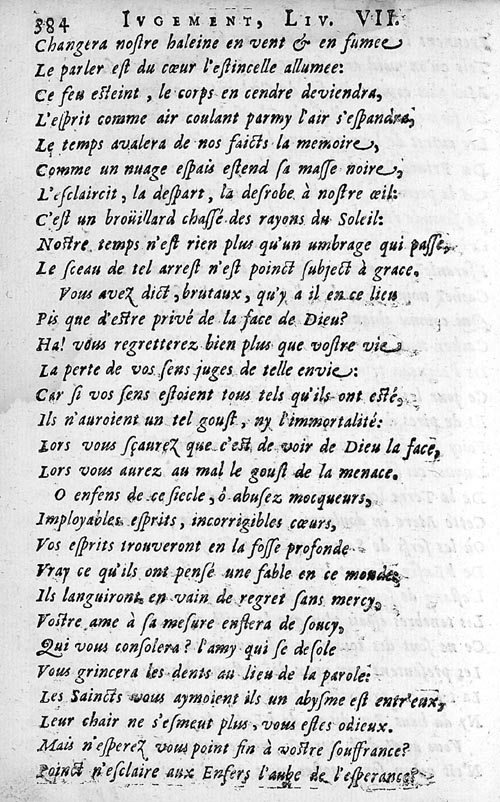 384 IVGEMENT, LIV. VII.
Changera nostre haleine en vent & en fumee
Le parler est du cœur l'estincelle allumee:
Ce feu esteint, le corps en cendre deviendra,
L'esprit comme air coulant parmy l'air s'espandra,
Le temps avalera de nos faicts la memoire,
Comme un nuage espais estend sa masse noire,
L'esclaircit, la despart, la desrobe à nostre œil:
C'est un broüillard chassé des rayons du Soleil:
Nostre temps n'est rien plus qu'un umbrage qui passe,
Le sceau de tel arrest n'est poinct subject à grace.
Vous avez dict, brutaux, qu'y a il en ce lieu
Pis que d'estre privé de la face de Dieu?
Ha! vous regretterez bien plus que vostre vie
La perte de vos sens juges de telle envie:
Car si vos sens estoient tous tels qu'ils ont esté,
Ils n'auroient un tel goust, ny l'immortalité:
Lors vous sçaurez que c'est de voir de Dieu la face,
Lors vous aurez au mal le goust de la menace.
O enfens de ce siecle, ô abusez mocqueurs,
Imployables esprits, incorrigibles cœurs,
Vos esprits trouveront en la fosse profonde
Vray ce qu'ils ont pensé une fable en ce monde,
Ils languiront en vain de regret sans mercy,
Vostre ame à sa mesure enflera de soucy,
Qui vous consolera? l'amy qui se desole
Vous grincera les dents au lieu de la parole:
Les Saincts vous aymoient ils un abysme est entr'eux,
Leur chair ne s'esmeut plus, vous estes odieux.
Mais n'esperez vous point fin à vostre souffrance?
Poinct n'esclaire aux Enfers l'aube de l'esperance?